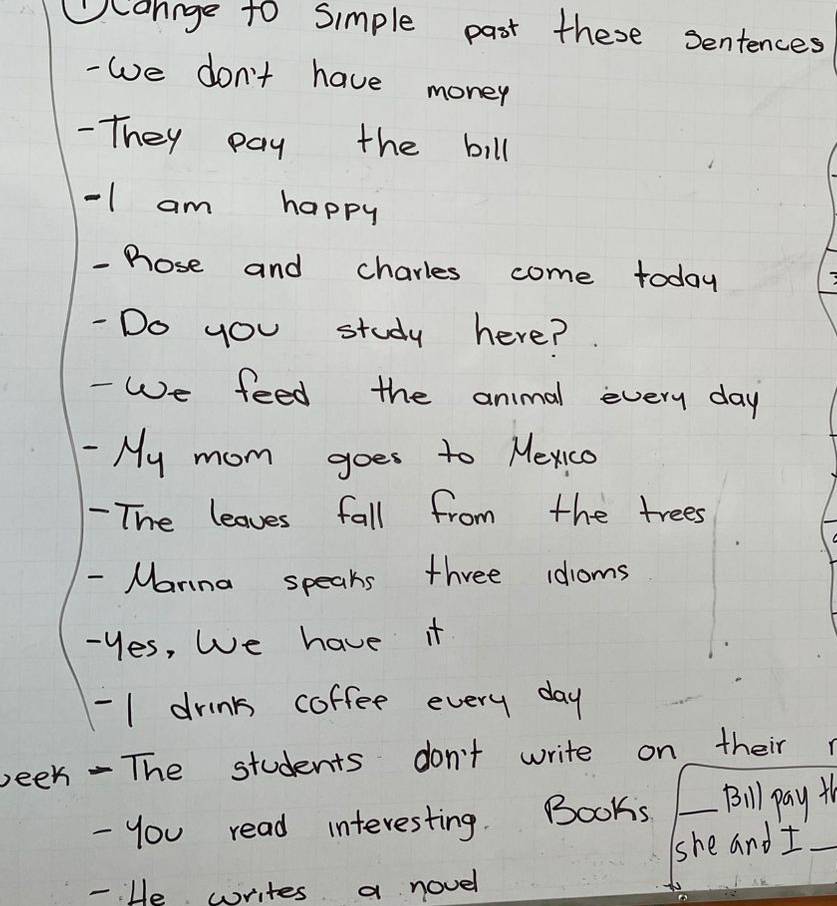 ① Cahnge to simple past these sentences
- We don't have money
- They pay the bill
- I am happy
- Rose and charles come today
- Do you study here?
- We feed the animal every day
- My mom goes to Mexico
- The leaves fall from the trees
- Marina speaks three idioms
- Yes, We have it
- I drink coffee every day
- The students don't write on their
- You read interesting. Books
- He writes a novel
__ Bill pay
she and I __